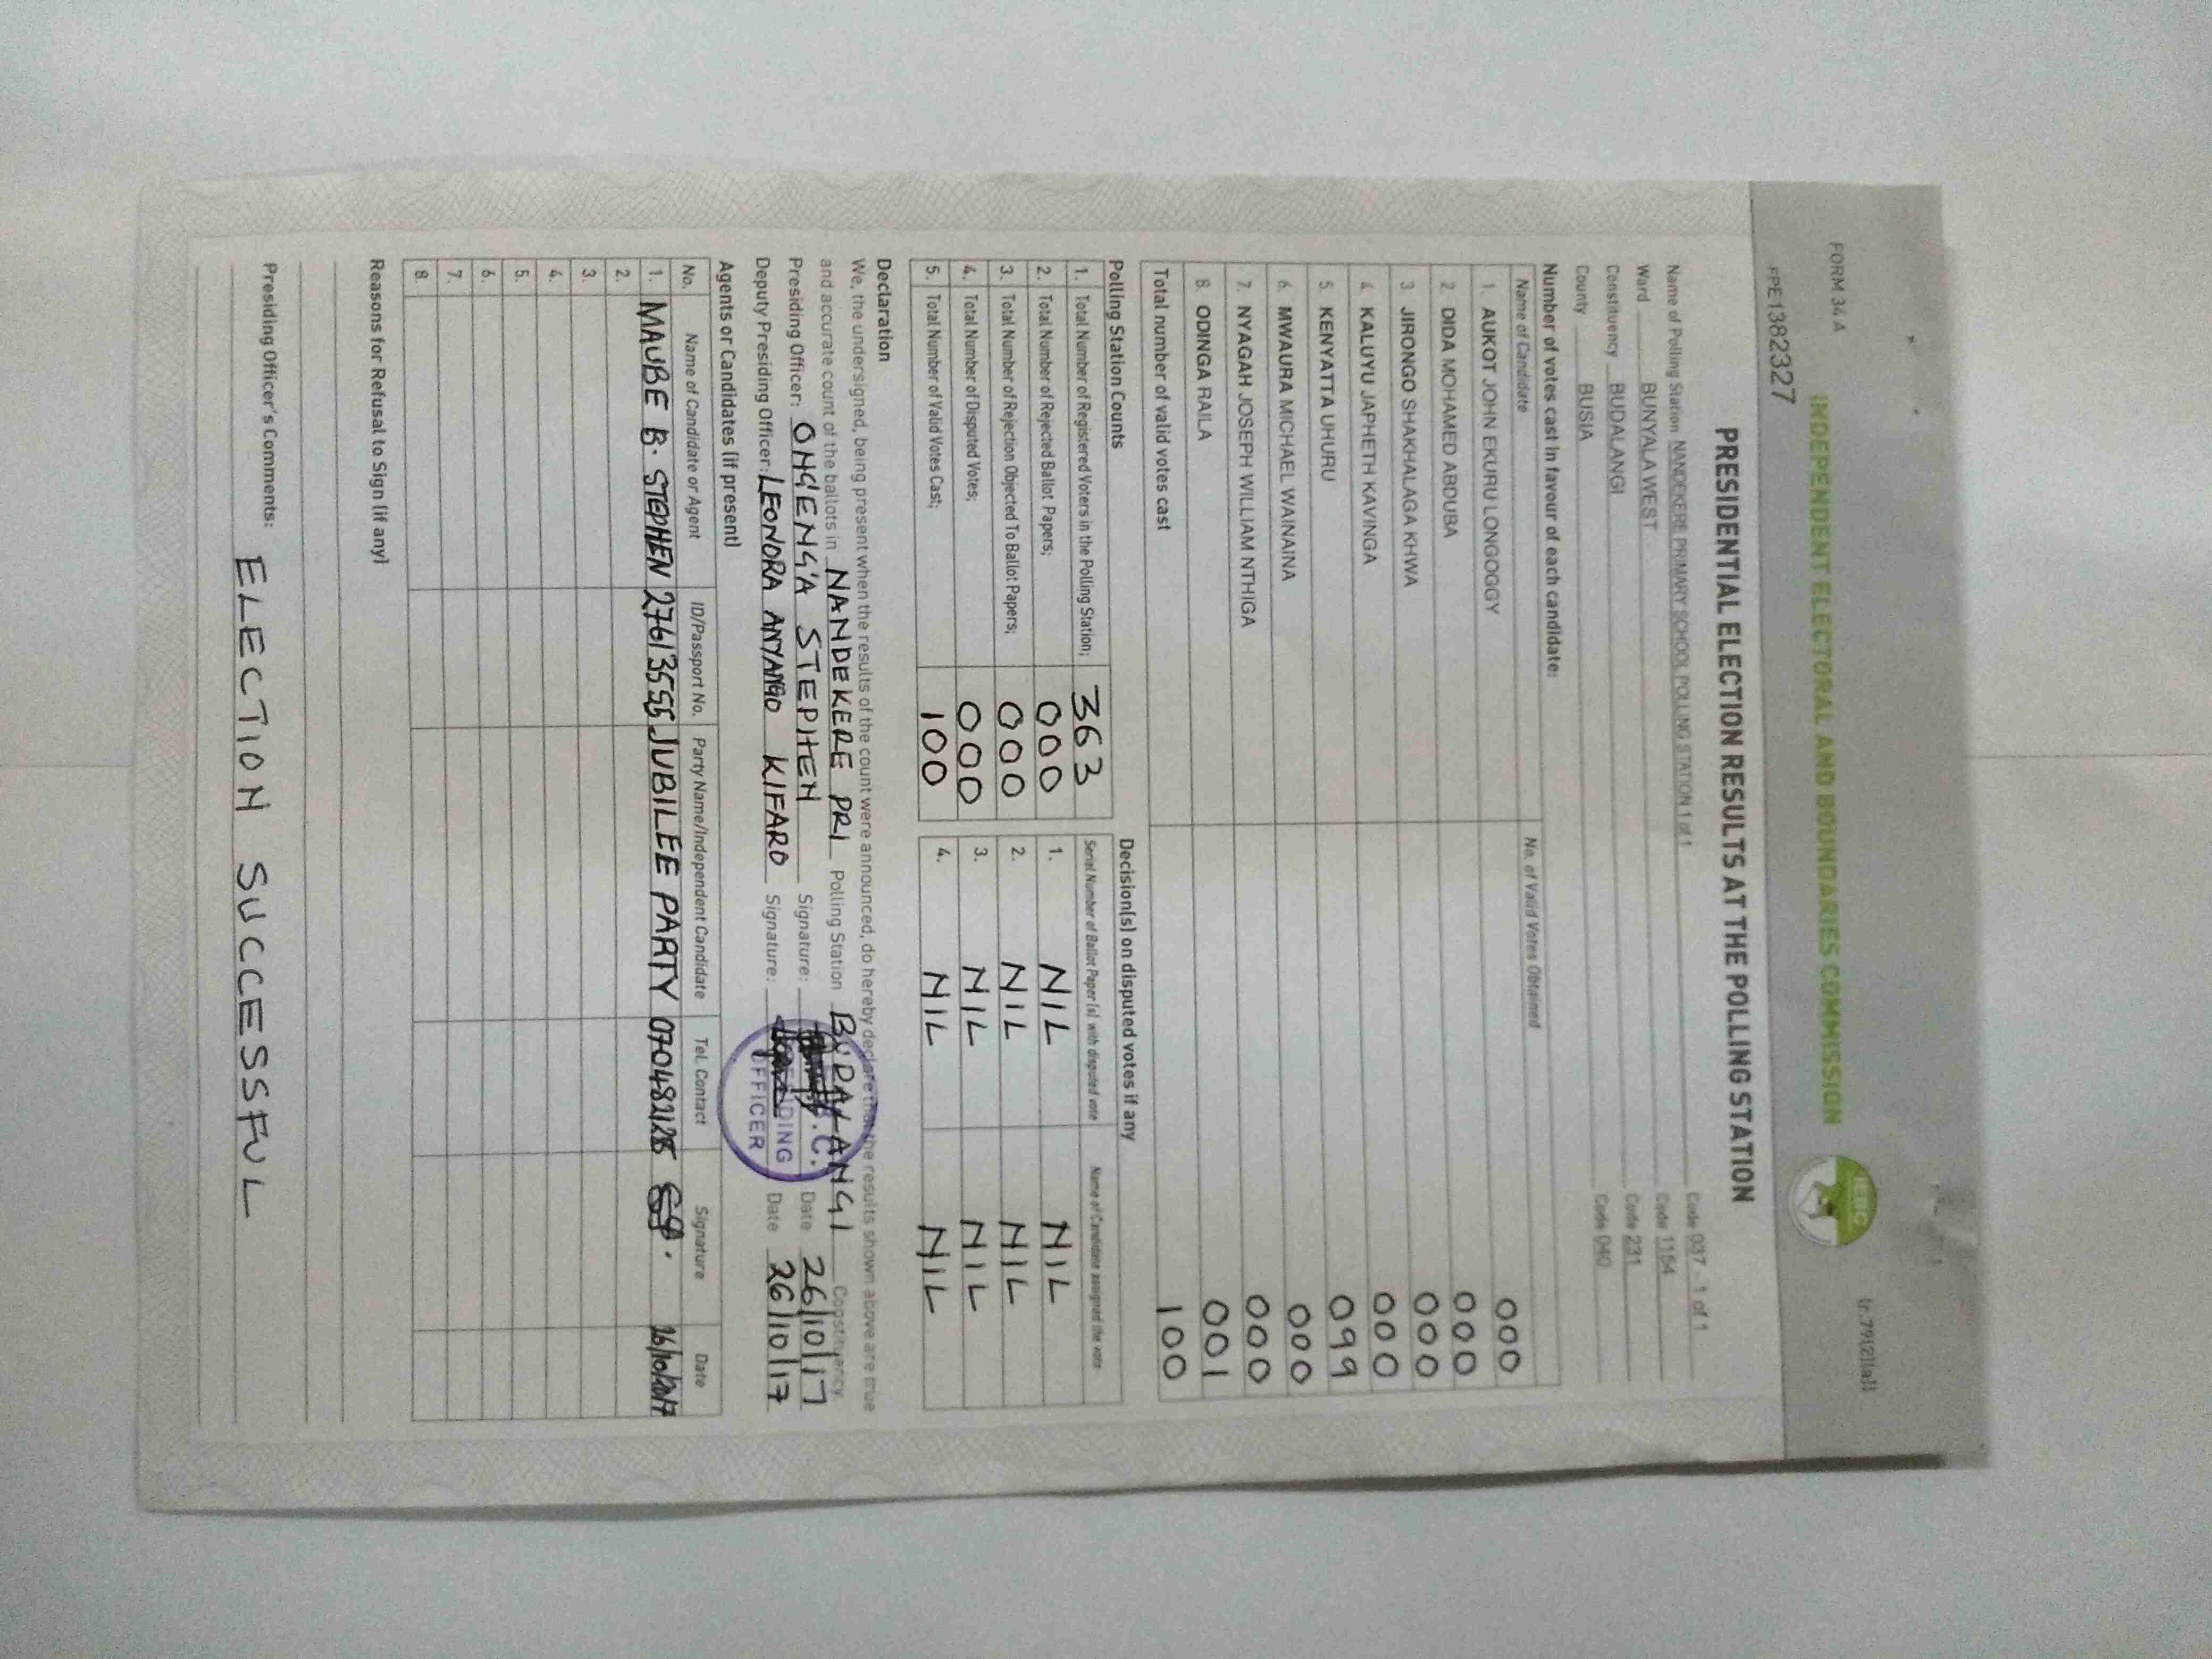 FORM 34A
(r.79(2)(a))
INDEPENDENT ELECTORAL AND BOUNDARIES COMMISSION
IEBC
PPE1382327
PRESIDENTIAL ELECTION RESULTS AT THE POLLING STATION
Name of Polling Station NANDEKERE PRIMARY SCHOOL POLLING STATION 1 of 1 Code 037 - 1 of 1
Ward BUNYALA WEST Code 1154
Constituency BUDALANGI Code 231
County BUSIA Code 040
Number of votes cast in favour of each candidate:
Name of Candidate No. of Valid Votes Obtained
1. AUKOT JOHN EKURU LONGOGGY 000
2. DIDA MOHAMED ABDUBA 000
3 JIRONGO SHAKHALAGA KHWA 000
4 KALUYU JAPHETH KAVINGA 000
5 KENYATTA UHURU 099
6. MWAURA MICHAEL WAINAINA 000
7. NYAGAH JOSEPH WILLIAM NTHIGA 000
8. ODINGA RAILA 001
Total number of valid votes cast 100
Polling Station Counts Decision(s) on disputed votes if any
Serial Number of Ballot Paper (s) with disputed vote Name of Candidate assigned the vote
1. Total Number of Registered Voters in the Polling Station; 363
2. Total Number of Rejected Ballot Papers; 000 1. NIL NIL
3. Total Number of Rejection Objected To Ballot Papers; 000 2. NIL NIL
4. Total Number of Disputed Votes; 000 3. NIL NIL
5. Total Number of Valid Votes Cast; 100 4. NIL NIL
Declaration
We, the undersigned, being present when the results of the count were announced, do hereby declare that the results shown above are true
and accurate count of the ballots in NANDEKERE PRI Polling Station BUDALANGI Constituency
Presiding Officer: ONGENG'A STEPHEN Signature: Date 26/10/17
Deputy Presiding Officer: LEONORA ANYANGO KIFARO Signature: Date 26/10/17
PRESIDING
OFFICER
Agents or Candidates (if present)
No. Name of Candidate or Agent ID/Passport No. Party Name/Independent Candidate Tel. Contact Signature Date
1. MAUBE B. STEPHEN 27613555 JUBILEE PARTY 26/10/2017
2.
3.
4.
5.
6.
7.
8.
Reasons for Refusal to Sign (if any)
Presiding Officer's Comments: ELECTION SUCCESSFUL